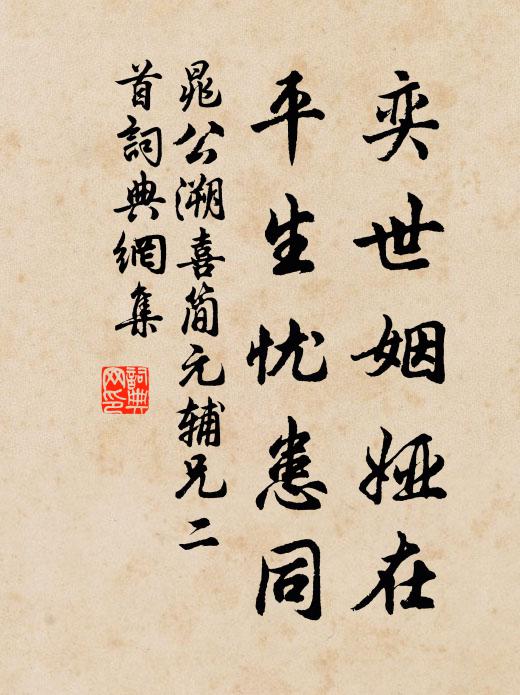 奕世姻娅在
平生忧患同
晁公溯喜简元辅兄二
首詞典網集
詞典
网印